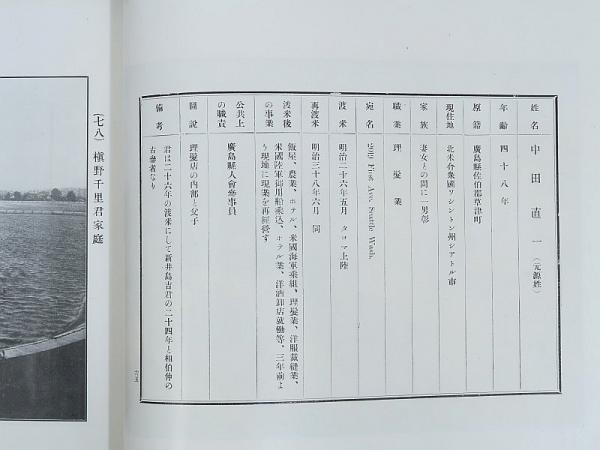 姓名 中田直一 (元源姓)
年齡 四十八年
原籍 廣島縣佐伯郡草津町
現住地 北米合衆國ワシントン州シアトル市
家族 妻女との間に一男彰
職業 理髮業
宛名 209 First Ave. Seattle Wash.
渡米 明治二十六年五月 タコマ上陸
再渡米 明治三十八年六月 同
渡米後の事業 飯屋、農業、ホテル、米國海軍乘組、理髮業、洋服裁縫業、
米國陸軍御用船乘込、ホテル業、洋酒卸店就働等、三年前よ
り現地に現業を再經營す
公共上の職責 廣島縣人會參事員
圖說 理髮店の內部と父子
備考 君は二十六年の渡米にして新井島吉君の二十四年と相伯仲の
古參者なり
六五
(七八) 槇野千里君家庭